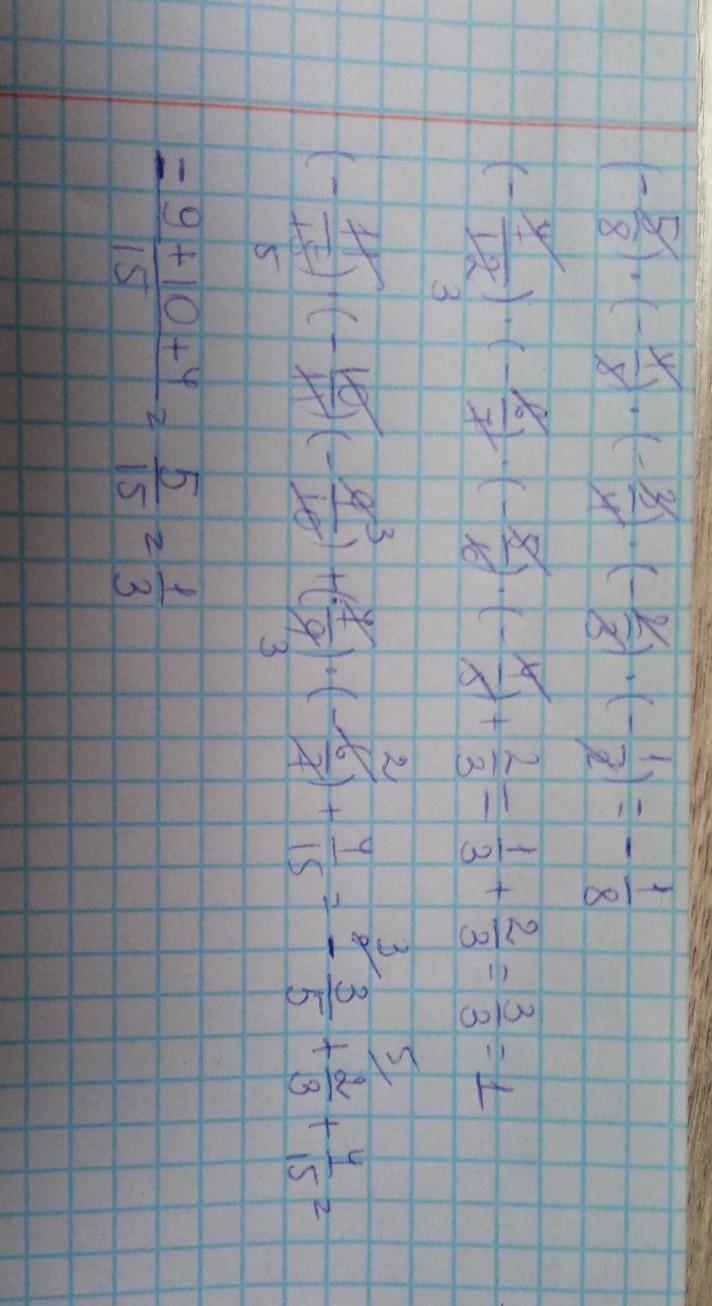 (-5/8)·(-4/5)·(-3/4)·(-2/3)·(-1/2) = -1/8
(-4/12)·(-6/7)·(-5/6)·(-4/5) + 2/3 = 1/3 + 2/3 = 3/3 = 1
5 3
(-11/15)·(-10/11)(-9/10) + (-7/9)·(-6/7) + 4/15 = -3/5 + 2/3 + 4/15 =
= -9+10+4/15 = 5/15 = 1/3